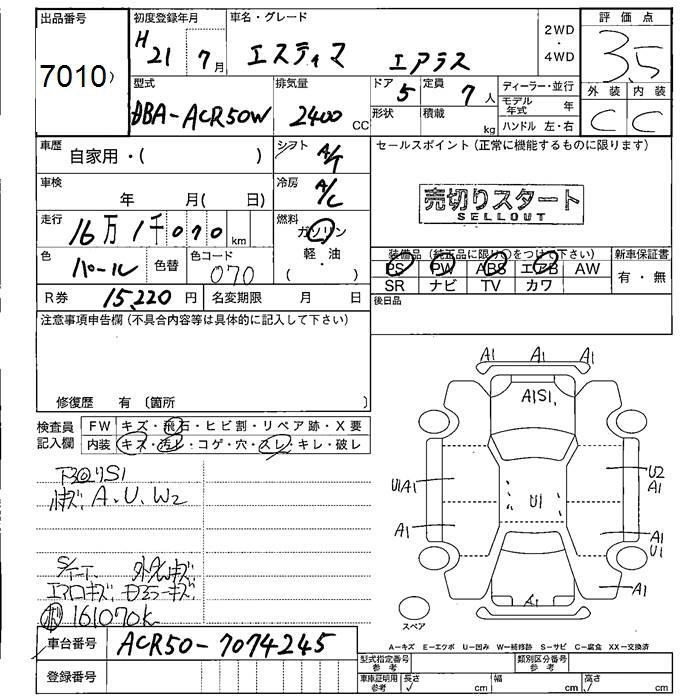 出品番号 初度登録年月 車名・グレード 2WD・4WD 評価点
7010) H21 7月 エスティマ エアラス 3.5
型式 排気量 ドア 5 定員 7人 ディーラー・並行 外装 内装
DBA-ACR50W 2400CC 形状 積載 kg モデル年式 年 C C
ハンドル 左・右
車歴 自家用・( ) シフト A/T セールスポイント(正常に機能するものに限ります)
車検 年 月( 日) 冷房 A/C
売切りスタート
SELLOUT
走行 16万1千070km 燃料 ガソリン
軽・油
( )
色 パール 色替 色コード 070
装備品(純正品に限り○をつけて下さい) 新車保証書
PS PW ABS エアB AW 有・無
SR ナビ TV カワ
R券 15,220円 名変期限 月 日 後日品
注意事項申告欄(不具合内容等は具体的に記入して下さい)
修復歴 有 〔箇所 〕
検査員記入欄 FW キズ・飛石・ヒビ割・リペア跡・X要
内装 キズ・汚レ・コゲ・穴・スレ・キレ・破レ
A1 A1 A1
A1S1.
U1A1 U1 U2
A1
A1 A1
U1
A1 A1
スペア
S1
A、U、W2
161070k
車台番号 ACR50-7074245
登録番号
A=キズ E=エクボ U=凹み W=補修跡 S=サビ C=腐食 XX=交換済
型式指定番号 参考 類別区分番号 参考
車庫証明用 参考 長さ cm 幅 cm 高さ cm